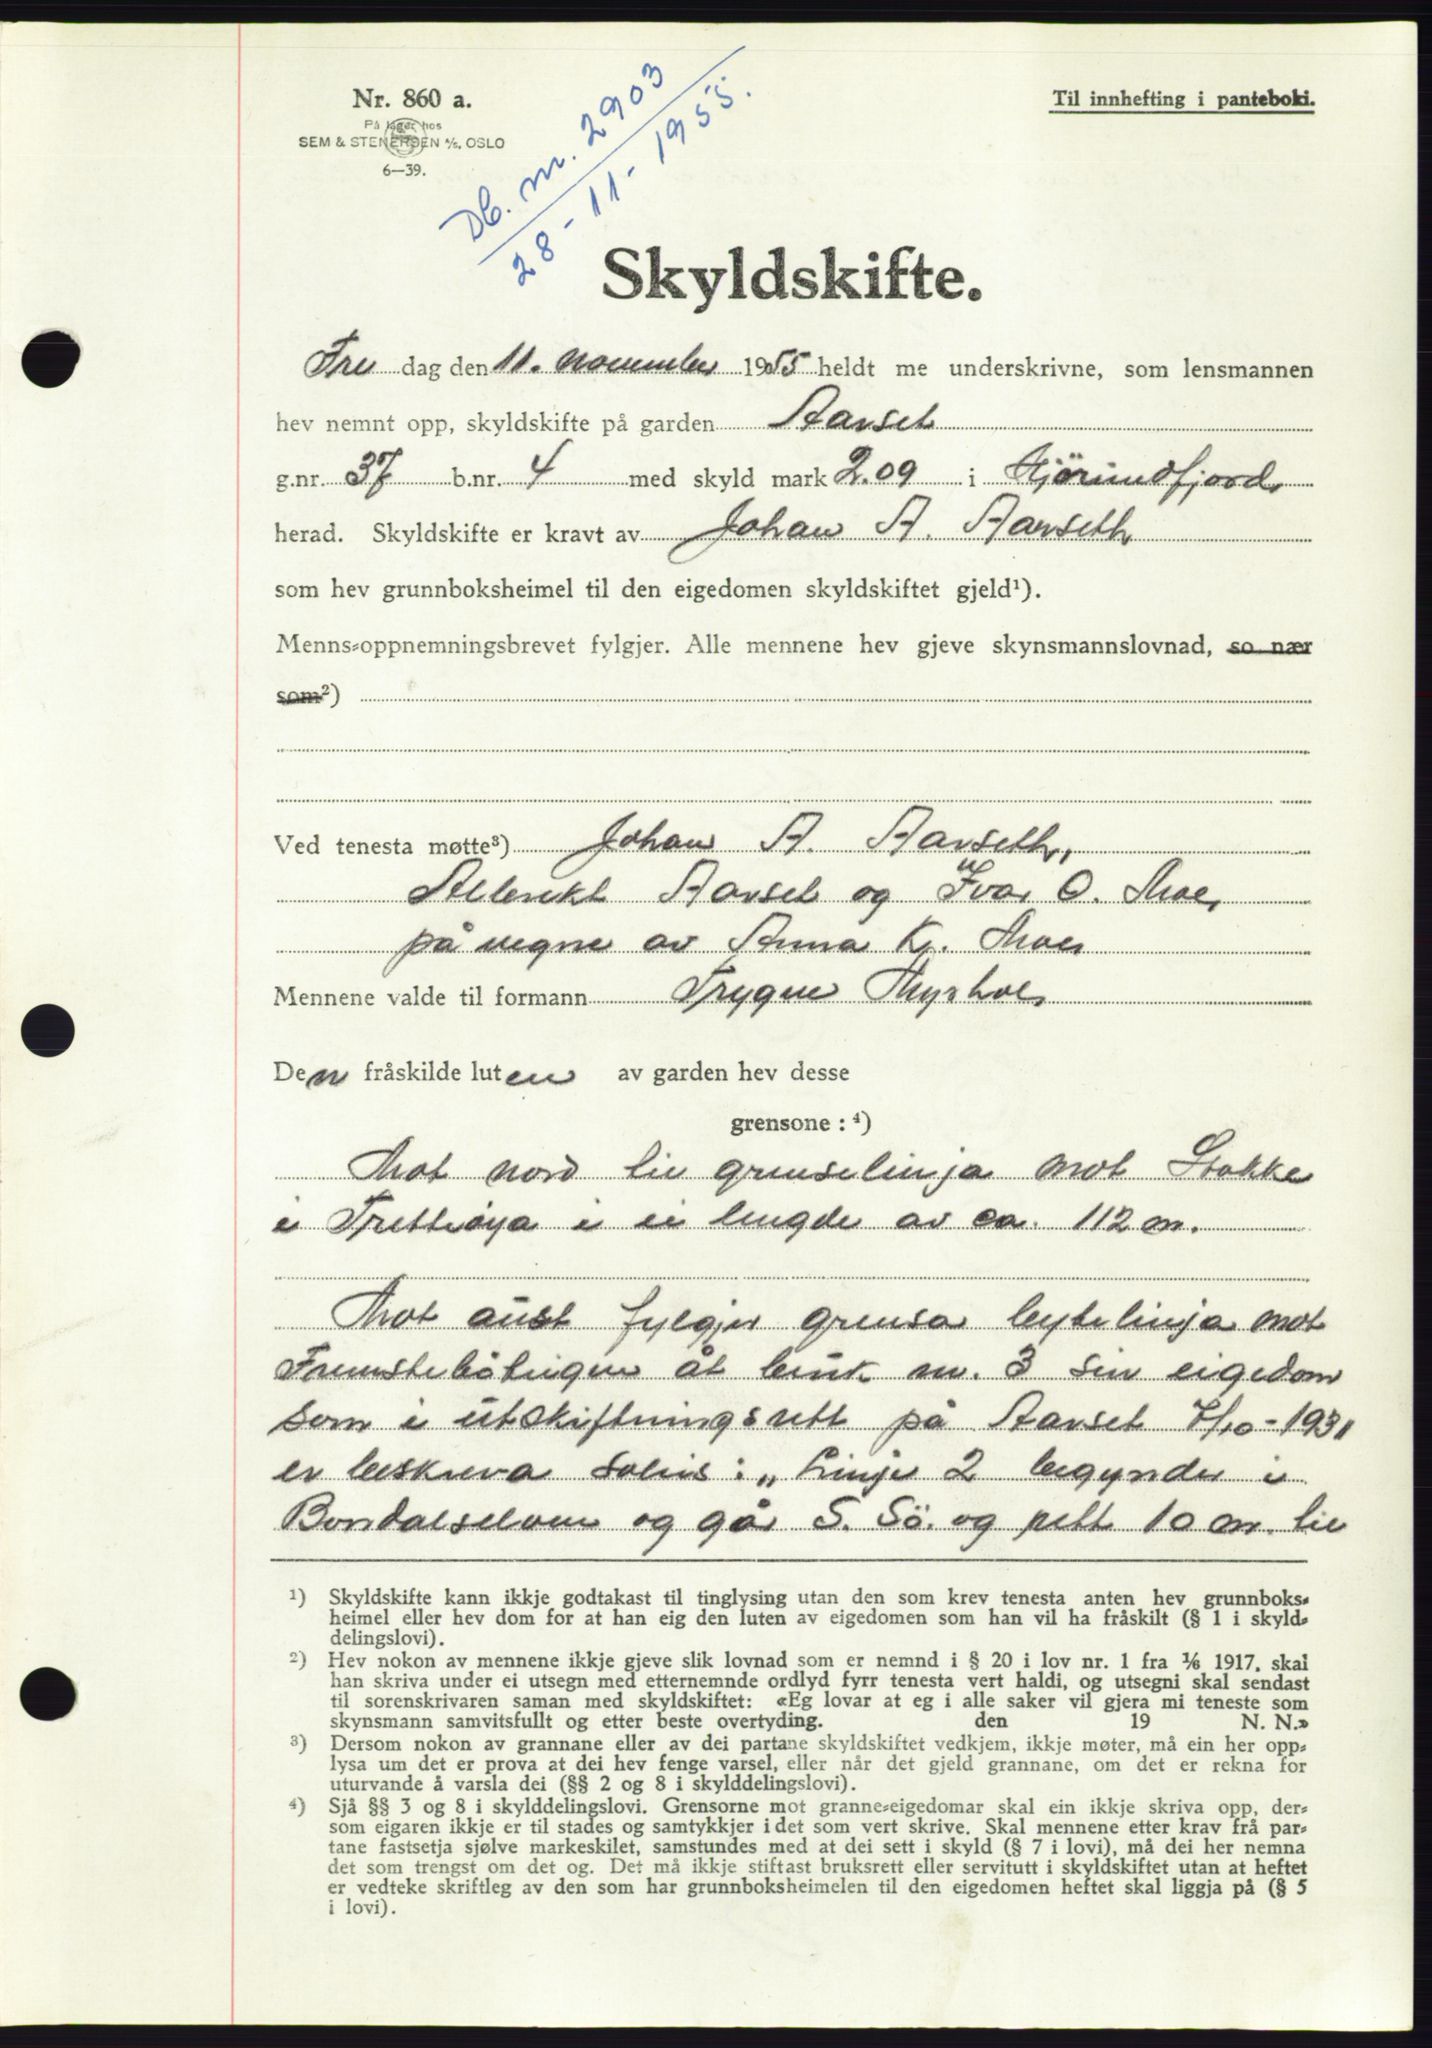 Nr. 860 a.
På lager hos
SEM & STENERSEN A/S, OSLO
6—39.
Til innhefting i panteboki.
Db. nr. 2903
28-11-1955.
Skyldskifte.
Fre dag den 11. november 1955 heldt me underskrivne, som lensmannen
hev nemnt opp, skyldskifte på garden Aarset
g.nr. 37 b.nr. 4 med skyld mark 2.09 i Hjörundfjord
herad. Skyldskifte er kravt av Johan A. Aarseth
som hev grunnboksheimel til den eigedomen skyldskiftet gjeld¹).
Menns-oppnemningsbrevet fylgjer. Alle mennene hev gjeve skynsmannslovnad, so nær
som²)
Ved tenesta møtte³) Johan A. Aarseth,
Albrikt Aarset og Ivar O. Moe,
på vegne av Anna K. Moe,
Mennene valde til formann Trygve Myrhol
Den fråskilde luten av garden hev desse
grensone : ⁴)
Mot nord til grenselinja mot Stokke
i Trettöya i ei lengde av ca. 112 m.
Mot aust fylgjer grensa bytelinja mot
Fremstebötingen åt bruk nr. 3 sin eigedom
som i utskiftningsrett på Aarset 7/10-1931
er beskreva soleis: „ Linje 2 begynder i
Bondalselven og går S. Sö. og rett 10 m. til
¹) Skyldskifte kann ikkje godtakast til tinglysing utan den som krev tenesta anten hev grunnboks-
heimel eller hev dom for at han eig den luten av eigedomen som han vil ha fråskilt (§ 1 i skyld-
delingslovi).
²) Hev nokon av mennene ikkje gjeve slik lovnad som er nemnd i § 20 i lov nr. 1 fra 1/6 1917, skal
han skriva under ei utsegn med etternemnde ordlyd fyrr tenesta vert haldi, og utsegni skal sendast
til sorenskrivaren saman med skyldskiftet: «Eg lovar at eg i alle saker vil gjera mi teneste som
skynsmann samvitsfullt og etter beste overtyding. den 19 N. N.»
³) Dersom nokon av grannane eller av dei partane skyldskiftet vedkjem, ikkje møter, må ein her opp-
lysa um det er prova at dei hev fenge varsel, eller når det gjeld grannane, om det er rekna for
uturvande å varsla dei (§§ 2 og 8 i skylddelingslovi).
⁴) Sjå §§ 3 og 8 i skylddelingslovi. Grensorne mot granne-eigedomar skal ein ikkje skriva opp, der-
som eigaren ikkje er til stades og samtykkjer i det som vert skrive. Skal mennene etter krav frå par-
tane fastsetja sjølve markeskilet, samstundes med at dei sett i skyld (§ 7 i lovi), må dei her nemna
det som trengst om det og. Det må ikkje stiftast bruksrett eller servitutt i skyldskiftet utan at heftet
er vedteke skriftleg av den som har grunnboksheimelen til den eigedomen heftet skal liggja på (§ 5
i lovi).